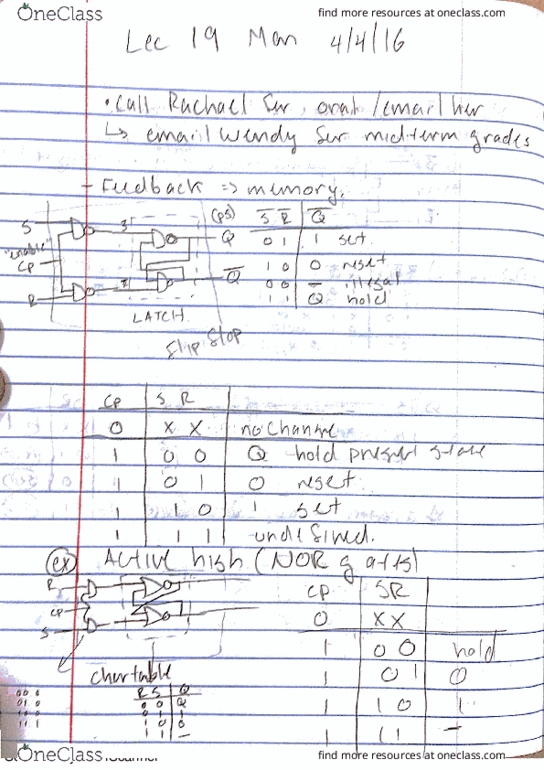 OneClass
find more resources at oneclass.com
Lec 19 Mon 4/4/16
• Call Rachael for oral /email her
↳ email Wendy for midterm grades
- Feedback => memory.
(PS) S̅ R̅ Q̅
S Q 0 1 1 set
"enable"
CP
1 0 0 reset
Q̅ 0 0 — illegal
R 1 1 Q hold
LATCH
flip flop
CP S R
0 X X no change
1 0 0 Q hold present state
1 0 1 0 reset
1 1 0 1 set
1 1 1 undefined.
(ex) Active high (NOR gates)
R
CP
S
CP SR
0 XX
1 00 hold
1 01 0
1 10 1
1 11 —
chartable
R S Q
0 0 Q
0 1 1
1 0 0
1 1 —
00 0
01 0
10 0
11 1
OneClass
find more resources at oneclass.com